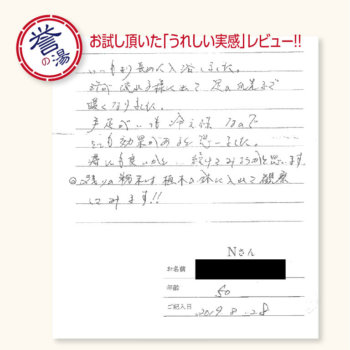 誉の湯
お試し頂いた「うれしい実感」レビュー!!
いつもより長めに入浴しました。
汗が流れる様に出て 足の先まで
暖くなりました。
手足が 冷え性 なので
とても効果があると思いました。
続けてみようかと思います。
粉末は 植木の鉢に入れて 観察
してみます!!
Nさん
お名前
年齢
50
ご記入日
2019. 8. 28